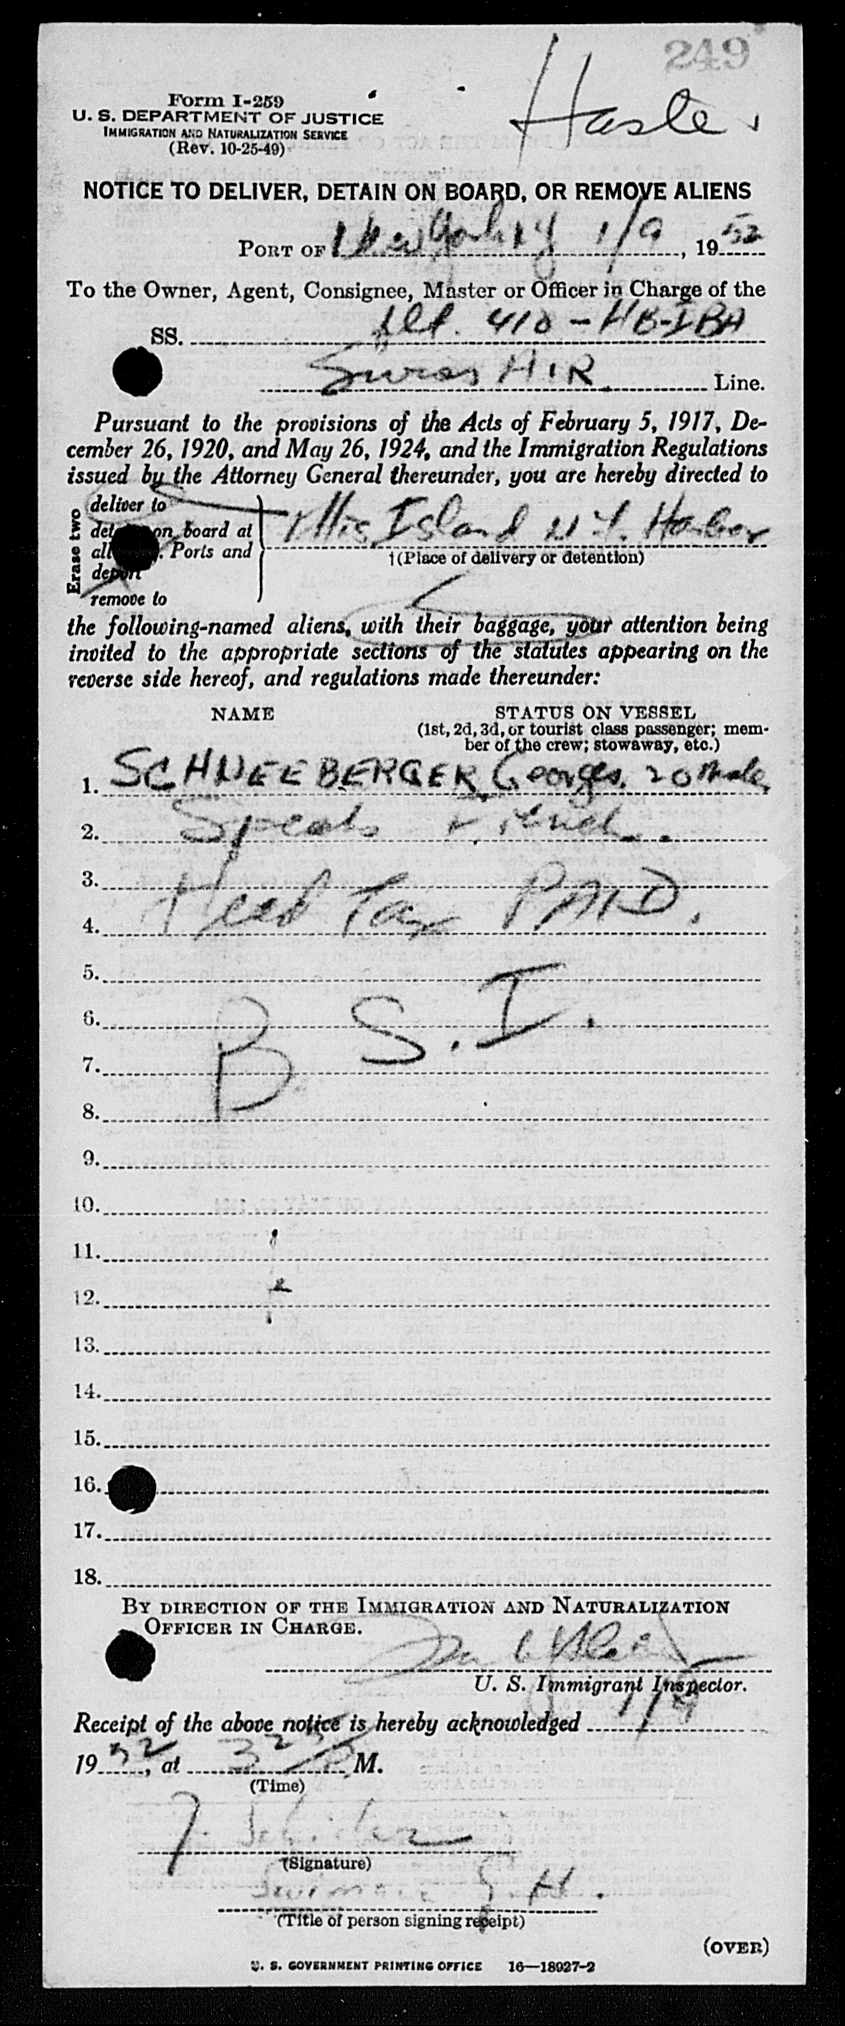 249
Haste.
Form I-259
U. S. DEPARTMENT OF JUSTICE
IMMIGRATION AND NATURALIZATION SERVICE
(Rev. 10-25-49)
NOTICE TO DELIVER, DETAIN ON BOARD, OR REMOVE ALIENS
PORT OF New York NY 1/9, 1952
To the Owner, Agent, Consignee, Master or Officer in Charge of the
SS. Flt. 410 - HB-IBA
Swiss AIR Line.
Pursuant to the provisions of the Acts of February 5, 1917, De-
cember 26, 1920, and May 26, 1924, and the Immigration Regulations
issued by the Attorney General thereunder, you are hereby directed to
Erase two
deliver to
on board at
Ports and
deport
remove to
Ellis Island N.Y. Harbor
(Place of delivery or detention)
the following-named aliens, with their baggage, your attention being
invited to the appropriate sections of the statutes appearing on the
reverse side hereof, and regulations made thereunder:
NAME STATUS ON VESSEL
(1st, 2d, 3d, or tourist class passenger; mem-
ber of the crew; stowaway, etc.)
1. SCHNEEBERGER, Georges. 20 Male
2. Speaks French.
3.
4. Head Tax PAID.
5.
6. B.S.I.
7.
8.
9.
10.
11.
12.
13.
14.
15.
16.
17.
18.
BY DIRECTION OF THE IMMIGRATION AND NATURALIZATION
OFFICER IN CHARGE.
U. S. Immigrant Inspector.
Receipt of the above notice is hereby acknowledged 1/9
1952, at M.
(Time)
(Signature)
(Title of person signing receipt)
(OVER)
U. S. GOVERNMENT PRINTING OFFICE 16—18927-2